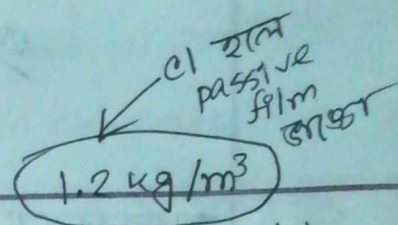 Cl হলে
passive
film
ভাঙ্গে
1.2 kg/m³